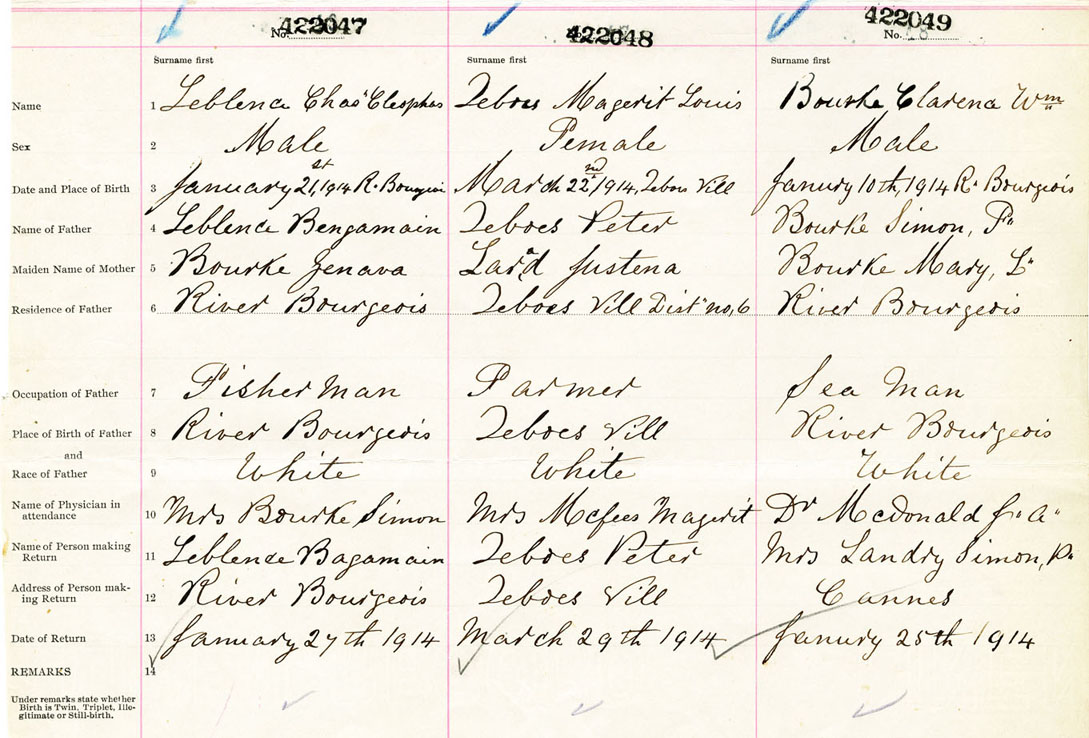 No. 422047 422048 422049 No. 18
Surname first Surname first Surname first
Name 1 Leblence Chas" Cleophas Zeboes Magerit Louis Bourke Clarence Wm
Sex 2 Male Female Male
Date and Place of Birth 3 January 21st, 1914 R. Bourgeois March 22nd/1914, Zeboes Vill Janury 10th, 1914 R" Bourgeois
Name of Father 4 Leblence Bengamain Zeboes Peter Bourke Simon, P"
Maiden Name of Mother 5 Bourke Jenava Lard Justena Bourke Mary, L"
Residence of Father 6 River Bourgeois Zeboes Vill Dist" no, 6 River Bourgeois
Occupation of Father 7 Fisher Man Farmer Sea Man
Place of Birth of Father 8 River Bourgeois Zeboes Vill River Bourgeois
and
Race of Father 9 White White White
Name of Physician in
attendance 10 Mrs Bourke Simon Mrs Mcfees Magerit Dr Mcdonald J" a"
Name of Person making
Return 11 Leblence Bagamain Zeboes Peter Mrs Landry Simon, P"
Address of Person mak-
ing Return 12 River Bourgeois Zeboes Vill Cannes
Date of Return 13 January 27th 1914 March 29th 1914 Janury 25th 1914
REMARKS 14
Under remarks state whether
Birth is Twin, Triplet, Ille-
gitimate or Still-birth.